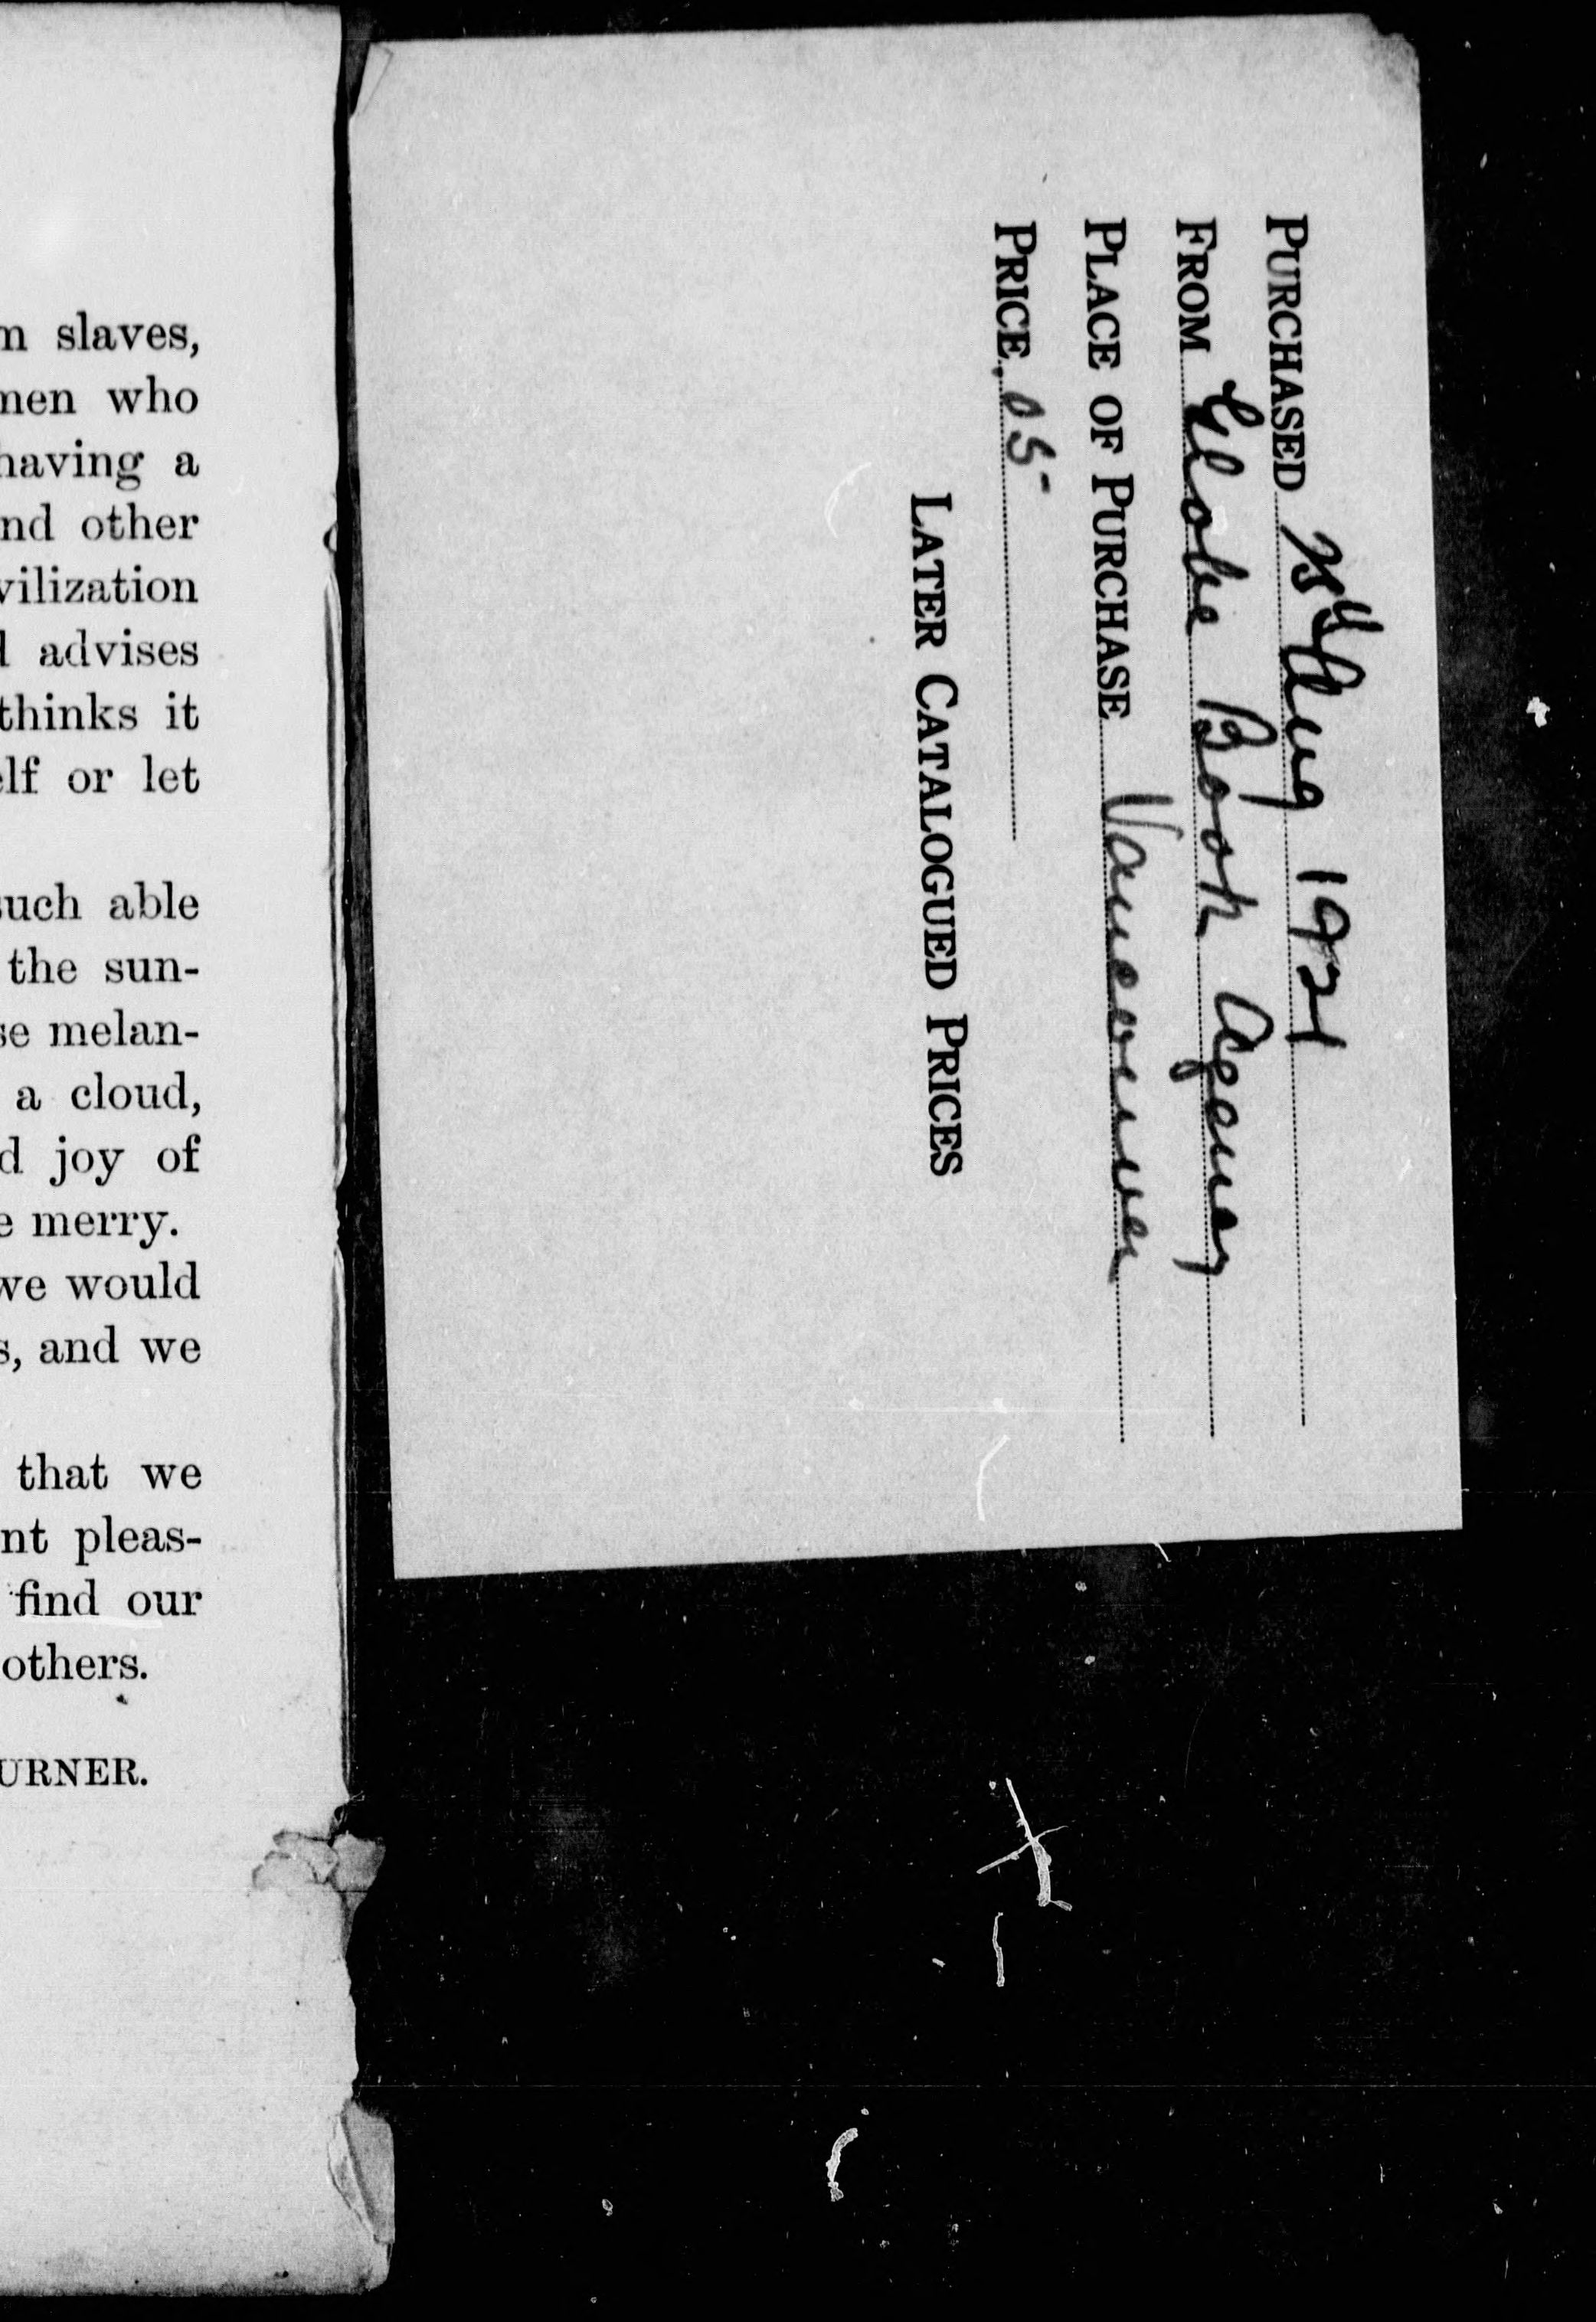 m slaves,
men who
having a
nd other
vilization
d advises
thinks it
elf or let
such able
the sun-
se melan-
a cloud,
d joy of
e merry.
we would
s, and we
that we
nt pleas-
find our
others.
URNER.
PURCHASED Aug 1921
FROM Globe Book Agency
PLACE OF PURCHASE Vancouver
PRICE .05-
LATER CATALOGUED PRICES